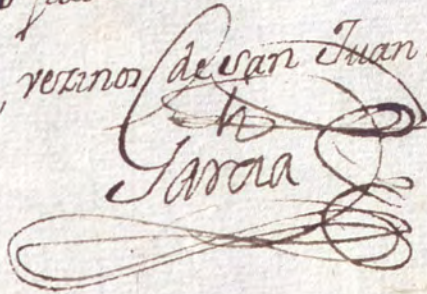 , vezinos de san Juan
h
Garcia